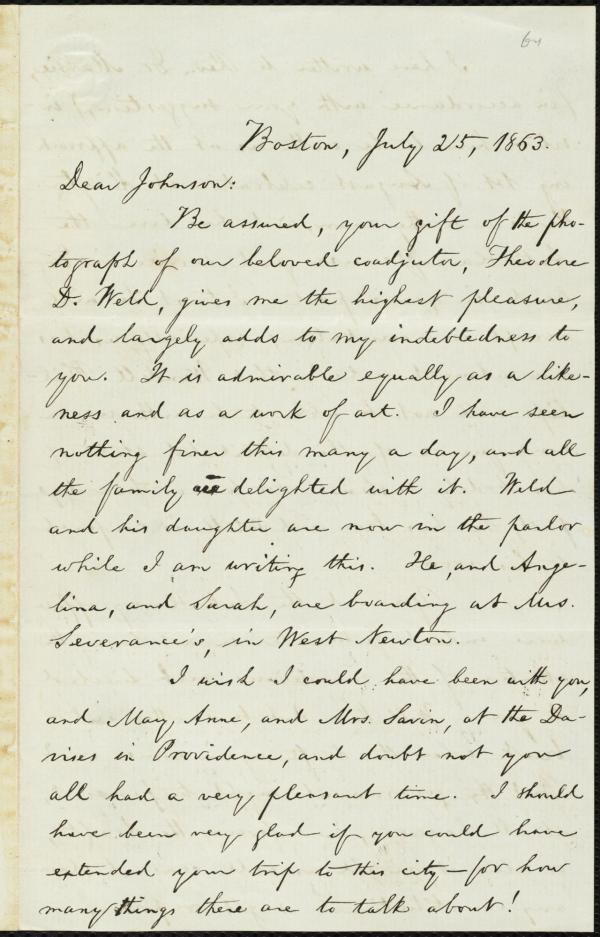 64
Boston, July 25, 1863.
Dear Johnson:
Be assured, your gift of the pho-
tograph of our beloved coadjutor, Theodore
D. Weld, gives me the highest pleasure,
and largely adds to my indebtedness to
you. It is admirable equally as a like-
ness and as a work of art. I have seen
nothing finer this many a day, and all
the family are delighted with it. Weld
and his daughter are now in the parlor
while I am writing this. He, and Ange-
lina, and Sarah, are boarding at Mrs.
Severance's, in West Newton.
I wish I could have been with you,
and May, Anne, and Mrs. Savin, at the Da-
vises in Providence, and doubt not you
all had a very pleasant time. I should
have been very glad if you could have
extended your trip to this city—for how
many things there are to talk about!